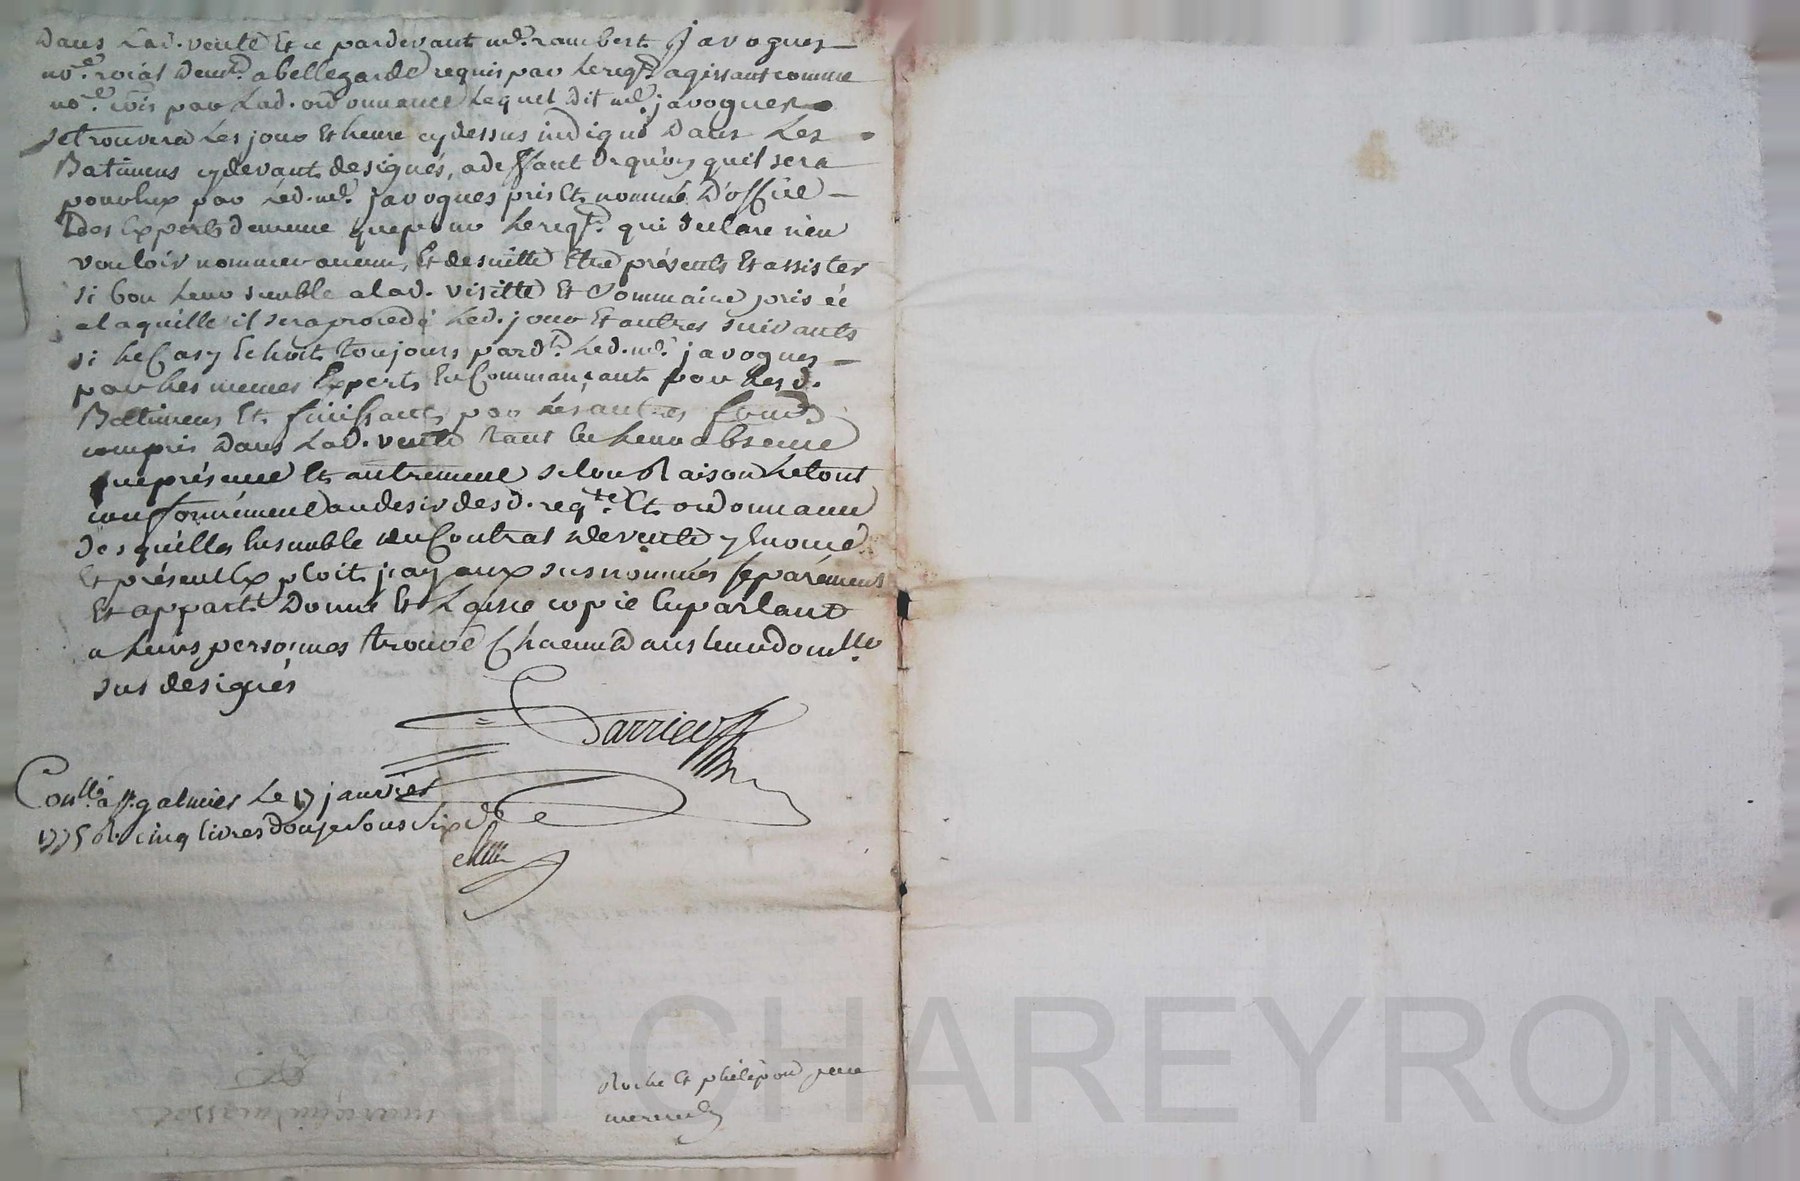 Dans Lad. vente Et ce pardevant me. rambert Javogues
no.e roial demt. a bellegarde requis par Le reqt. agissant comme
no.e cõis par Lad. ordonnance Lequel dit me. javogues
se trouvera Les jour Et heure cy dessus indiqué Dans Les
Batimens cy devant designés, a deffaut de quoy quil sera
pour Eux par Led. me. javogues pris Et nommé D'office
Des Experts de meme que pour Le reqt. qui declare n'en
vouloir nommer aucun, Et de suitte Etre présents Et assister
si bon Leur semble a lad. visitte Et Sommaire prisée
a laquelle il sera procedé Led. jour Et autres suivants
si Le Cas y Echoit toujours pardt. Led. me. javogues
par Les memes Experts En Commançant par Lesd.
Batimens Et finissant par Les autres fonds
compris Dans Lad. vente tant En Leur absence
que présence Et autrement selon Raison Le tout
conformément au desir desd. reqte. Et ordonnance
Desquelles Ensemble du Contrat de vente y Enoncé
Et présent Exploit j'ay aux susnommés séparément
Et appart. Donné Et Laissé copie En parlant
a Leurs personnes trouvé Chacun Dans Leur domlle
sus designés
Barrieu
Conllé a st. galmier Le 17 janvier
1775 R. cinq livres douze sous six d.
Roche Et philipon pere
CHAREYRON